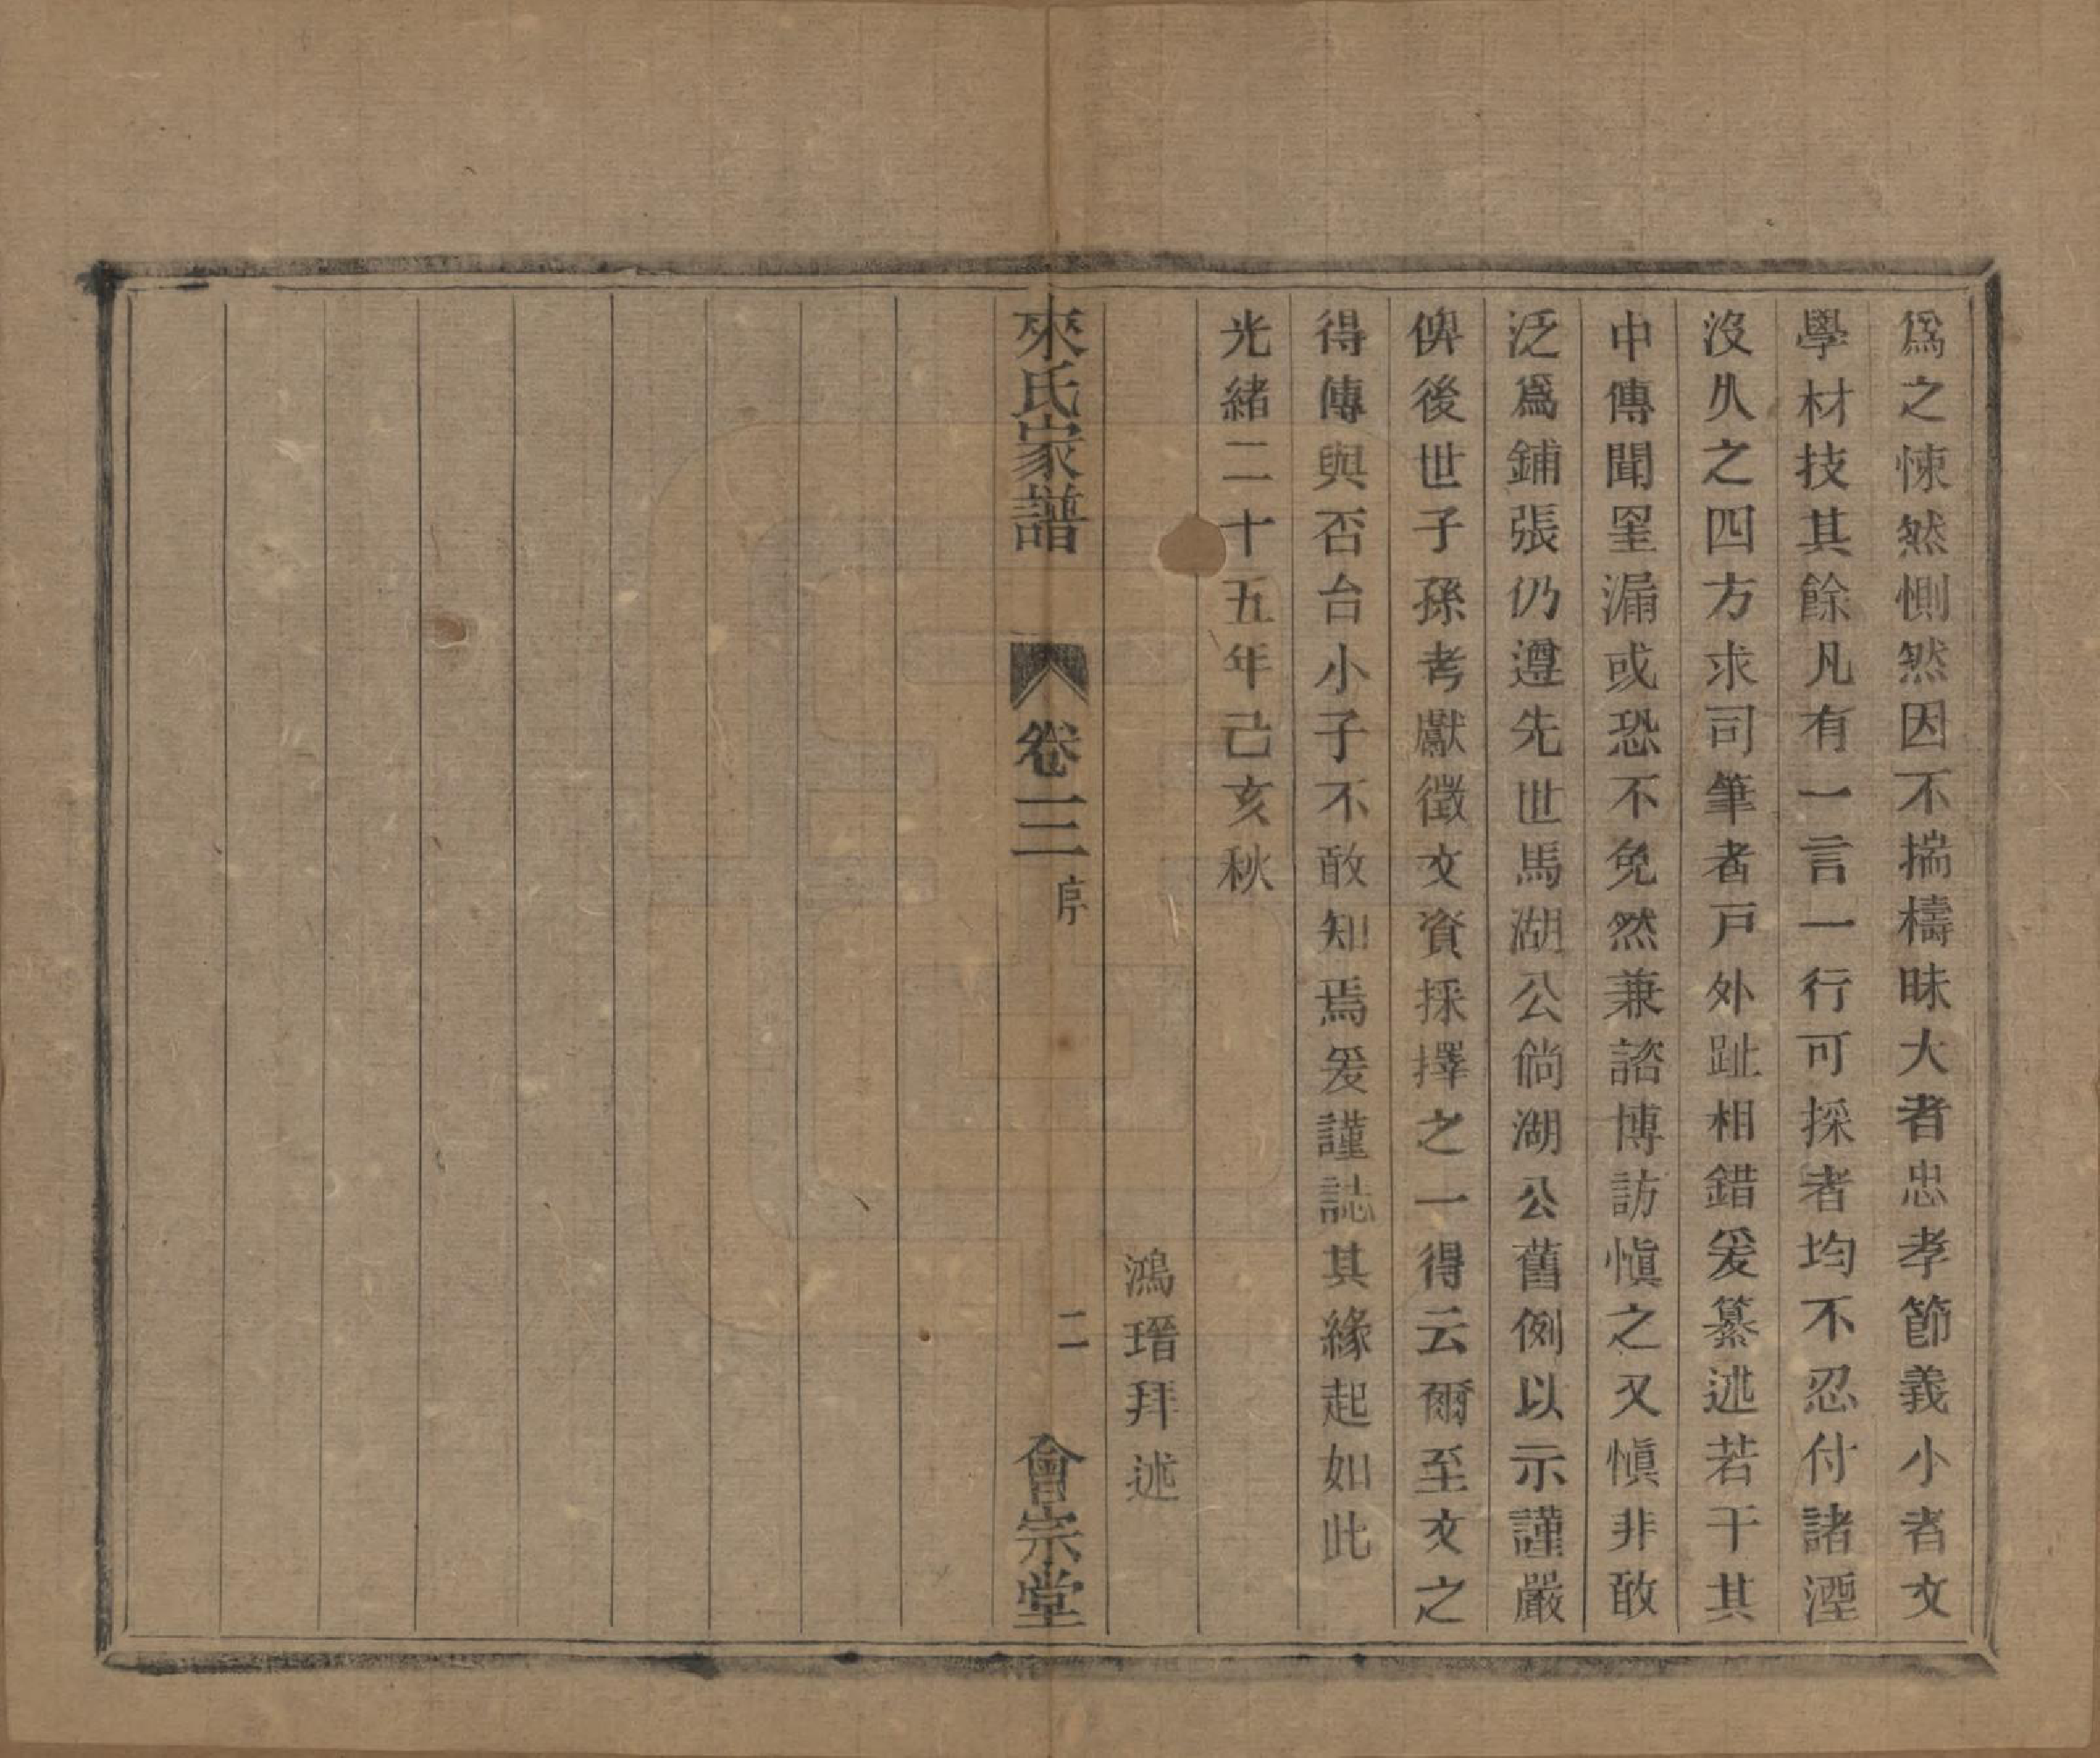 為之悚然惻然因不揣檮昧大者忠孝節義小者文
學材技其餘凡有一言一行可採者均不忍付諸湮
沒久之四方求司筆者戸外趾相錯爰纂述若干其
中傳聞罣漏或恐不免然兼諮博訪愼之又愼非敢
泛爲鋪張仍遵先世馬湖公倘湖公舊例以示謹嚴
俾後世子孫考獻徵文資採擇之一得云爾至文之
得傳與否台小子不敢知焉爰謹誌其緣起如此
光緒二十五年己亥秋
鴻瑨拜述
來氏家譜 卷三 序 二 會宗堂